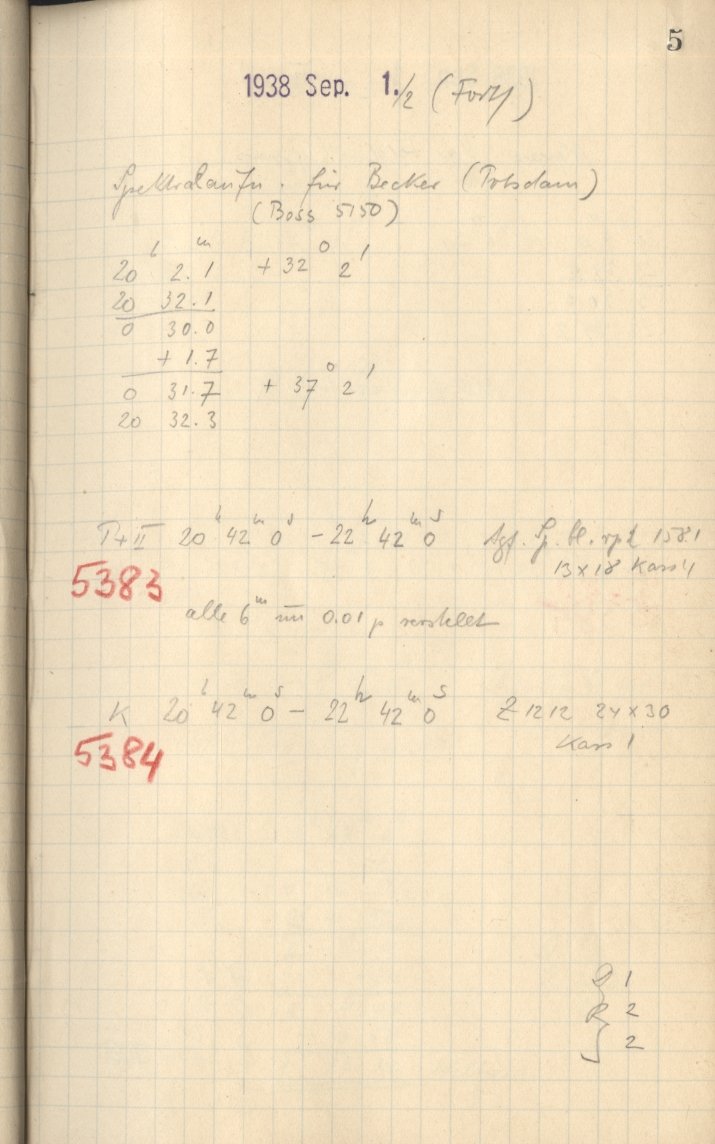 5
1938 Sep. 1./2 (Forts)
Spektralaufn. für Becker (Potsdam)
(Boss 5150)
20 h 2.1 m + 32° 2'
20 32.1
0 30.0
+ 1.7
0 31.7 + 37° 2'
20 32.3
T+II 20h 42m 0s – 22h 42m 0s Agf. Sp. bl. rpd 1581
5383 13 x 18 Kass 4
alle 6m um 0.01 p verstellt
K 20h 42m 0s – 22h 42m 0s Z 1212 24 x 30
5384 Kass 1
D 1
R 2
2